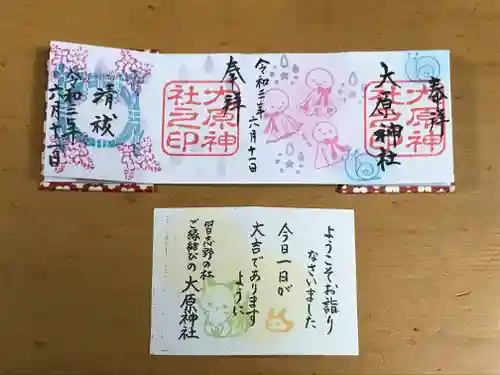 奉拝
大原神社
大原神
社之印
令和三年六月十一日
奉拝
大原神
社之印
清祓
令和三年
六月十一日
ようこそお詣り
なさいました
今日一日が
大吉であります
ように
習志野の杜
ご縁結びの
大原神社